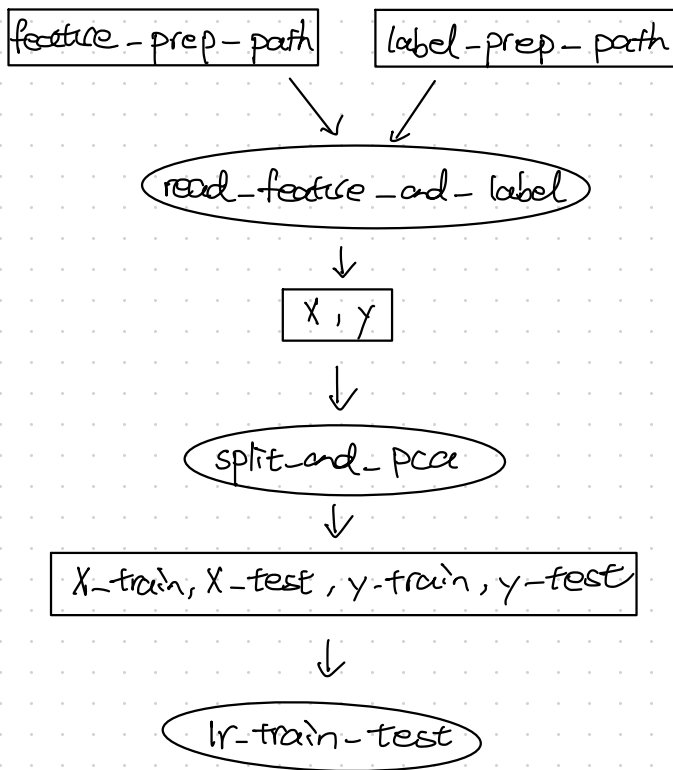 feature_prep_path label_prep_path
read_feature_and_label
X, y
split_and_pca
X_train, X_test, y_train, y_test
lr_train_test